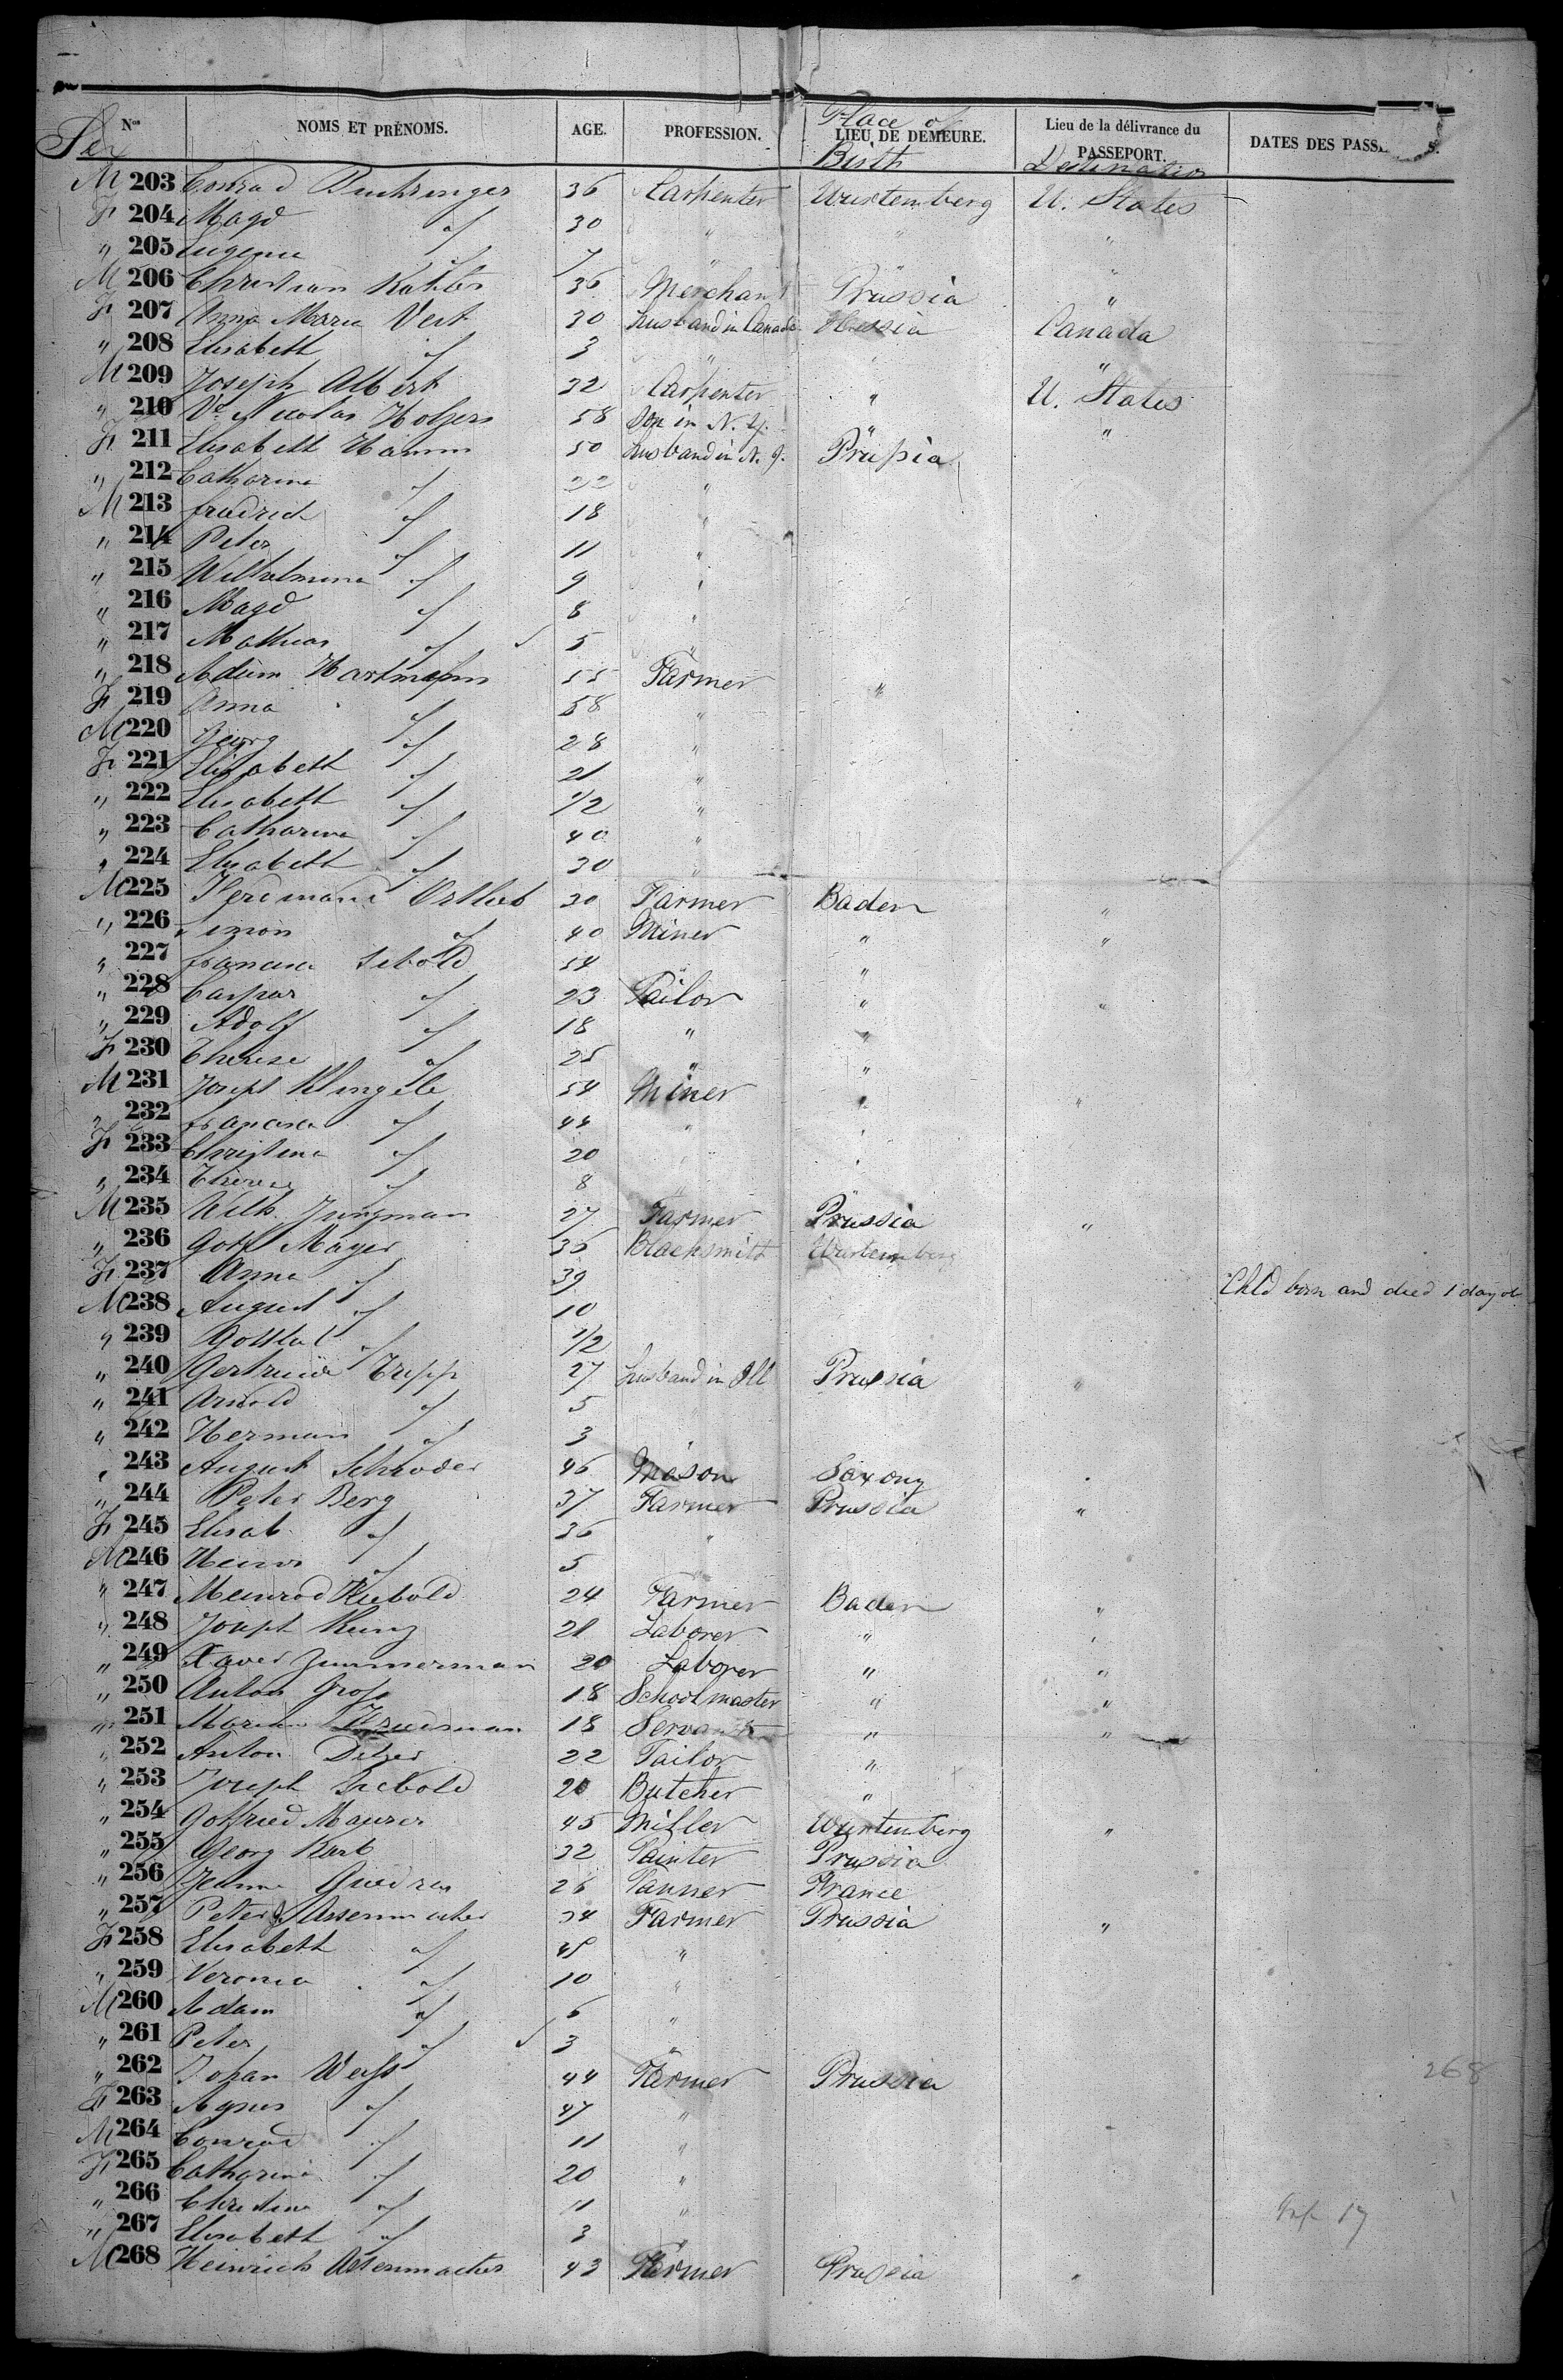 Sex Nos NOMS ET PRÉNOMS. AGE. PROFESSION. LIEU DE DEMEURE. Place of Birth Lieu de la délivrance du PASSEPORT. Destination DATES DES PASSE S.
M 203 Conrad Buchsinger 36 Carpenter Wurtemberg U. States
F 204 Magd " 30 " " "
" 205 Eugenie " 7 " "
M 206 Christian 36 Merchant Prussia "
F 207 Anna Maria Veit 30 husband in Canada Hessia Canada
" 208 Elisabeth " 3 " " "
M 209 Joseph Albert 32 Carpenter " U. States
" 210 Nicolas Holzers 58 Son in N. Y. " "
F 211 Elisabeth Hamm 50 husband in N. Y. Prussia
" 212 Catharina " 22 "
M 213 fredrich " 18 "
" 214 Peter " 11 "
" 215 Wilhelmina " 9 "
" 216 Magd " 8 "
" 217 Mathias " 5 "
" 218 Adam Hartmann 55 Farmer "
F 219 Anna " 58 "
M 220 Georg " 28 "
F 221 Elisabeth " 21 "
" 222 Elisabeth " 1/2 "
" 223 Catharina " 40 "
" 224 Elisabeth " 30 "
M 225 Ferdinand Ortlieb 30 Farmer Baden "
" 226 Simon " 40 Miner " "
" 227 francisca Sebold 54 " "
" 228 Caspar " 23 Tailor " "
" 229 Adolf " 18 " "
F 230 Therese " 25 " "
M 231 Joseph Klingele 54 Miner " "
" 232 francisca " 44 " "
F 233 Christina " 20 " "
" 234 Therese " 8
M 235 Wilh. Jungman 27 Farmer Prussia "
" 236 Gotf Mayer 36 Blacksmith Wurtemberg
F 237 Anna " 39 Child born and died 1 day ol
M 238 August " 10
" 239 Gottlob " 1/2
" 240 Gertrude Tripp 27 husband in Ill Prussia "
" 241 Arnold " 5
" 242 Herman " 3 "
" 243 August Schroder 46 Mason Saxony "
" 244 Peter Berg 37 Farmer Prussia "
F 245 Elisab " 36 "
M 246 Heinr " 5
" 247 Meinrod 24 Farmer Baden "
" 248 Joseph Kunz 21 Laborer " "
" 249 Xaver Zimmerman 20 Laborer " "
" 250 Anton Gross 18 Schoolmaster " "
" 251 18 Servant " "
" 252 Anton Delzer 22 Tailor "
" 253 Joseph Siebold 20 Butcher "
" 254 Gotfried Maurer 45 Miller Wurtemberg "
" 255 Georg Karb 32 Painter Prussia
" 256 26 Tanner France
" 257 Peter Assenmacher 34 Farmer Prussia "
F 258 Elisabeth " 45 "
" 259 Veronica " 10 "
M 260 Adam " 6 "
" 261 Peter " 3 "
" 262 Johan Weiss 44 Farmer Prussia 268
F 263 Agnes " 47 "
M 264 Conrad " 11 "
F 265 Catharina " 20 "
" 266 Christina " 11 "
" 267 Elisabeth " 3 " 17
M 268 Heinrich Assenmacher 43 Farmer Prussia "